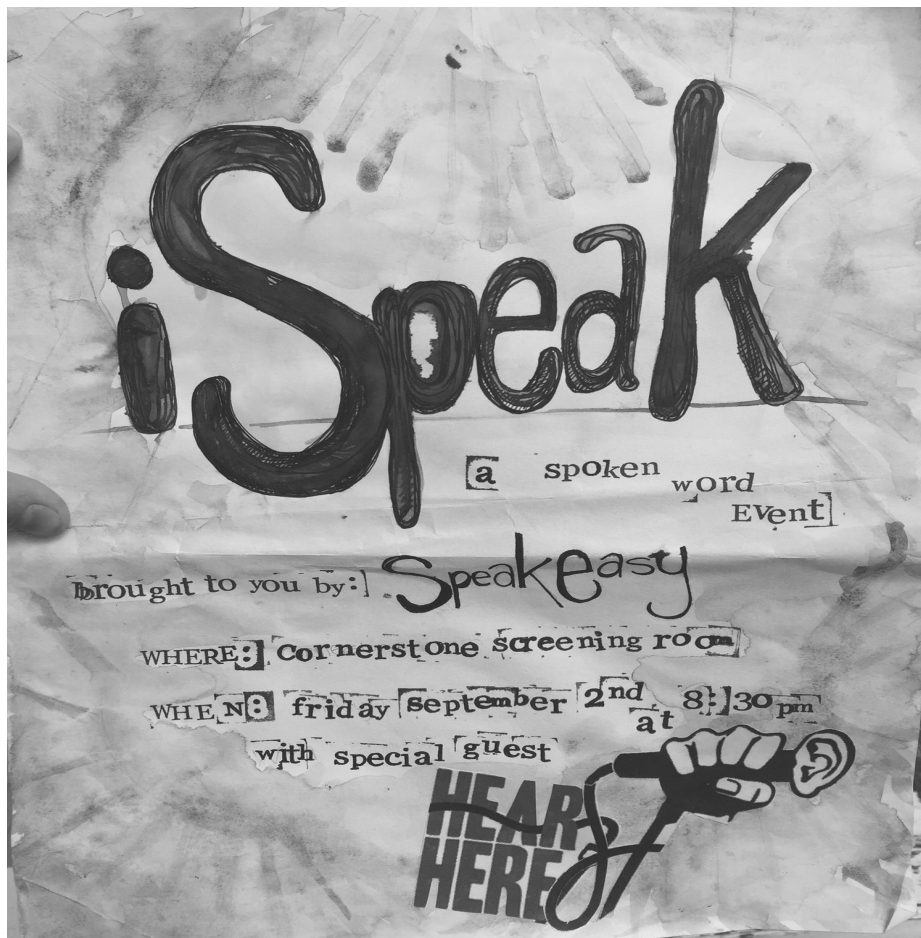 iSpeak
[a spoken word Event]
brought to you by:] Speakeasy
WHERE:] cornerstone screening room
WHEN: friday september 2nd at 8:30pm
with special guest
HEAR
HERE